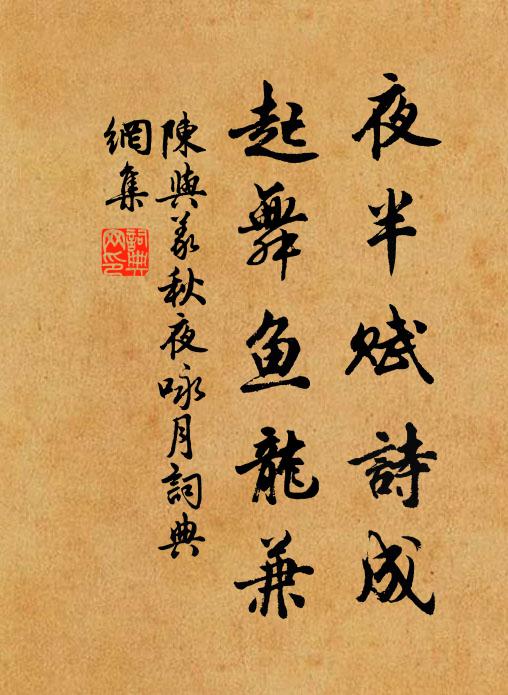 夜半賦詩成
起舞魚龍兼
陳與義秋夜咏月詞典
網集
詞典
网印